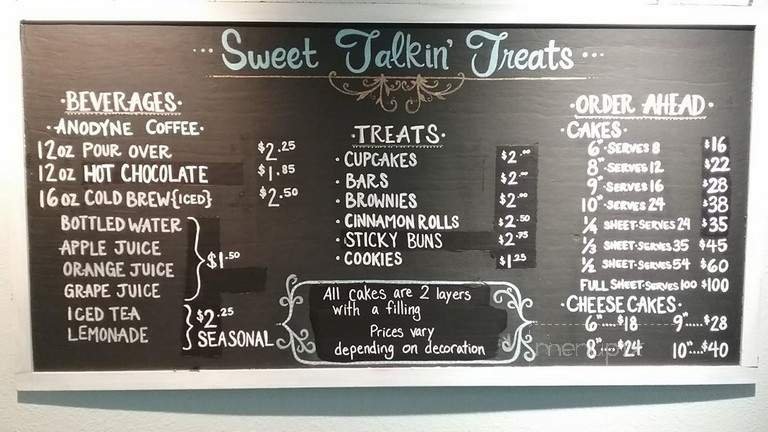 Sweet Talkin' Treats
·BEVERAGES·
·ANODYNE COFFEE·
12oz POUR OVER $2.25
12oz HOT CHOCOLATE $1.85
16oz COLD BREW {ICED} $2.50
BOTTLED WATER
APPLE JUICE
ORANGE JUICE
GRAPE JUICE
$1.50
ICED TEA
LEMONADE
$2.25
SEASONAL
·TREATS·
·CUPCAKES $2.00
·BARS $2.00
·BROWNIES $2.00
·CINNAMON ROLLS $2.50
·STICKY BUNS $2.75
·COOKIES $1.25
All cakes are 2 layers
with a filling
Prices vary
depending on decoration
·ORDER AHEAD·
·CAKES·
6"·SERVES 8 $16
8"·SERVES 12 $22
9"·SERVES 16 $28
10"·SERVES 24 $38
¼ SHEET·SERVES 24 $35
⅓ SHEET·SERVES 35 $45
½ SHEET·SERVES 54 $60
FULL SHEET·SERVES 100 $100
·CHEESECAKES·
6"....$18 9"...$28
8"....$24 10"...$40